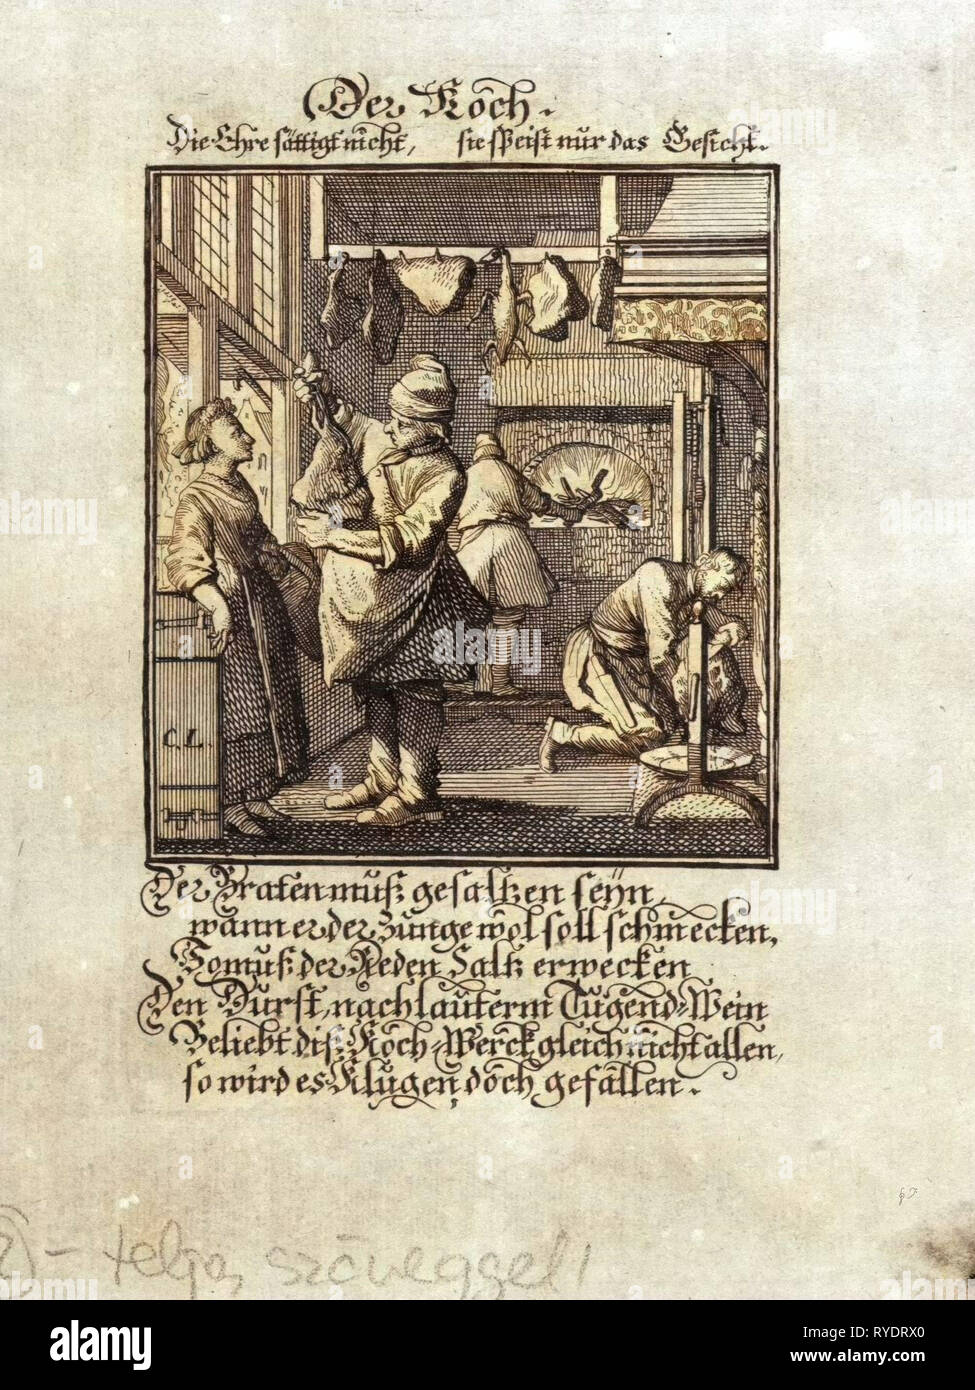 Der Koch.
Die Ehre sättigt nicht, sie speist nur das Gesicht.
C. L.
Der Braten muß gesaltzen seÿn,
wann er der Zunge wol soll schmecken,
So muß der Reden Saltz erwecken
Den Durst, nach lauterm Tugend-Wein
Beliebt diß Koch-Werck gleich nicht allen,
so wird es Klugen doch gefallen.
teljes szöveggel!
alamy
Image ID: RYDRX0
www.alamy.com